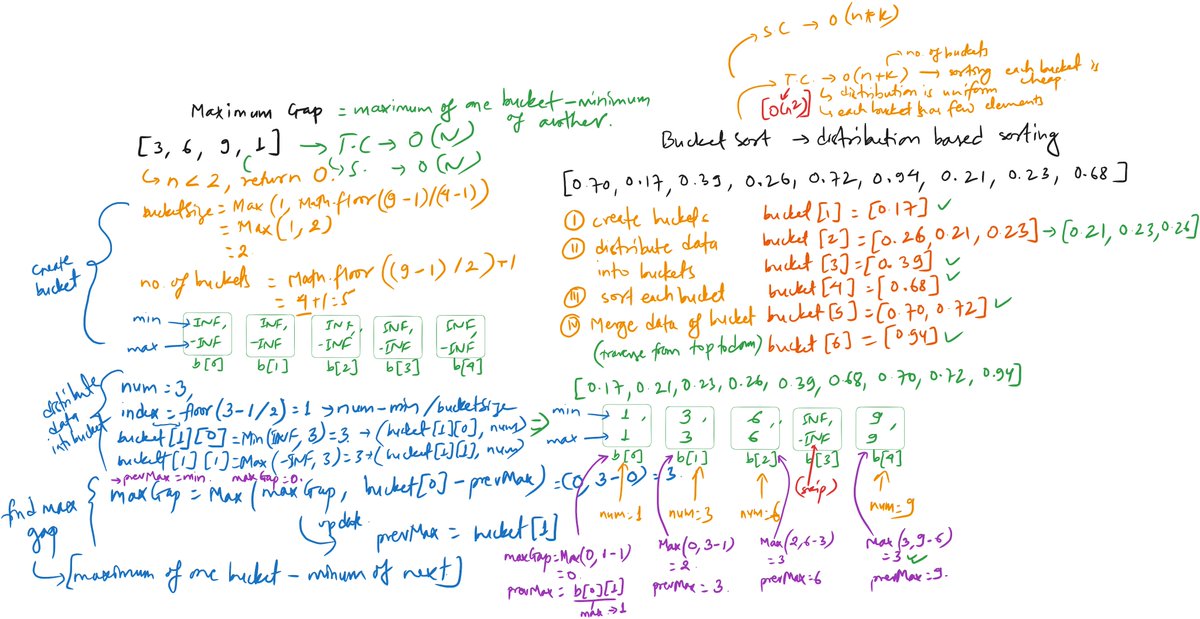 Maximum Gap = maximum of one bucket - minimum of another.
[3, 6, 9, 1] → T.C → O(N)
↳ S. → O(N)
↳ n < 2, return 0.
bucketsize = Max(1, Math.floor((9-1)/(4-1))
= Max(1, 2)
= 2
create bucket
no. of buckets = Math.floor((9-1)/2)+1
= 4+1=5
min → INF, INF, INF, INF, INF,
max → -INF -INF -INF -INF -INF
b[0] b[1] b[2] b[3] b[4]
distribute data into bucket
num = 3,
index = floor(3-1/2) = 1 → num-min/bucketsize
bucket[1][0] = Min(INF, 3) = 3. → (bucket[1][0], num)
bucket[1][1] = Max(-INF, 3) = 3 → (bucket[1][1], num)
→ prevMax = min. maxGap = 0.
find max gap
maxGap = Max(maxGap, bucket[0] - prevMax) = (0, 3-0) = 3.
update
prevMax = bucket[1]
↳ [maximum of one bucket - minum of next]
S C → O(n*k)
no. of buckets
T.C. → O(n+k) → sorting each bucket is cheap.
[O(n2)] ↳ distribution is uniform
↳ each bucket has few elements
Bucket sort → distribution based sorting
[0.70, 0.17, 0.39, 0.26, 0.72, 0.94, 0.21, 0.23, 0.68]
I create buckets
II distribute data into buckets
III sort each bucket
IV Merge data of bucket
(traverse from top to down)
bucket[1] = [0.17] ✓
bucket[2] = [0.26, 0.21, 0.23] → [0.21, 0.23, 0.26]
bucket[3] = [0.39] ✓
bucket[4] = [0.68] ✓
bucket[5] = [0.70, 0.72] ✓
bucket[6] = [0.94] ✓
[0.17, 0.21, 0.23, 0.26, 0.39, 0.68, 0.70, 0.72, 0.94]
⇒ min → 1, 3, 6, INF, 9,
max → 1 3 6 -INF 9
b[0] b[1] b[2] b[3] b[4]
(skip)
num=1 num=3 num=6 num=9
maxGap = Max(0, 1-1)
= 0.
prevMax = b[0][1]
max → 1
Max(0, 3-1)
= 2
prevMax = 3.
Max(2, 6-3)
= 3
prevMax = 6
Max(3, 9-6)
= 3 ✓
prevMax = 9.